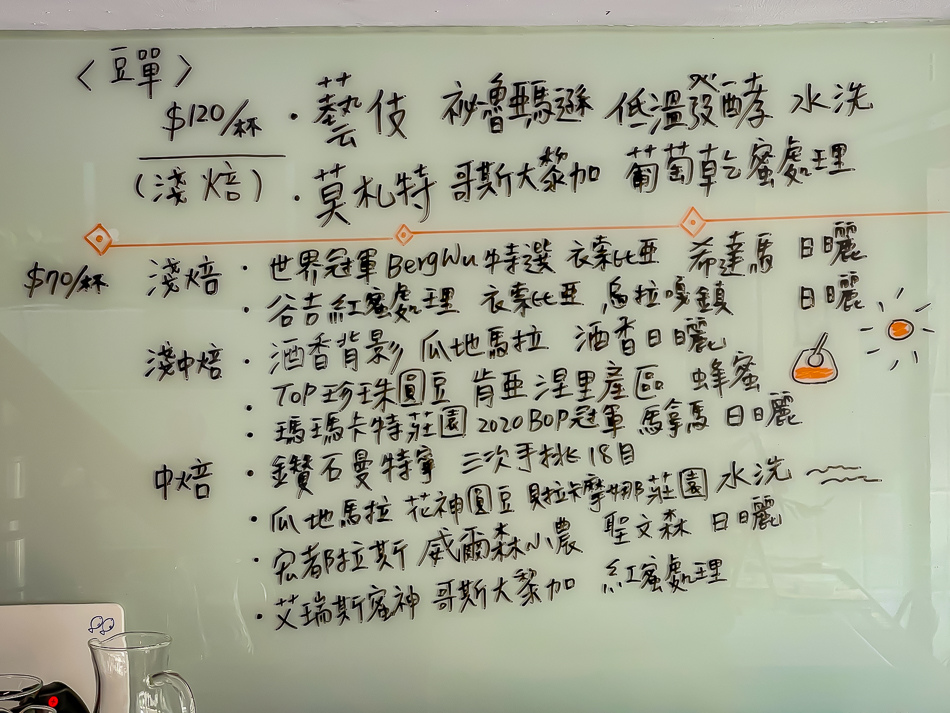 〈豆單〉
$120/杯 · 藝伎 祕魯亞馬遜 低溫發酵 水洗
(淺焙) · 莫札特 哥斯大黎加 葡萄乾蜜處理
$70/杯 淺焙 · 世界冠軍BergWu特選 衣索比亞 希達馬 日曬
· 谷吉紅蜜處理 衣索比亞 烏拉嘎鎮 日曬
淺中焙 · 酒香背影 瓜地馬拉 酒香日曬
· TOP珍珠圓豆 肯亞涅里產區 蜂蜜
· 瑪瑪卡特莊園 2020 BOP冠軍 馬拿馬 日曬
中焙 · 鑽石曼特寧 三次手挑 18目
· 瓜地馬拉 花神圓豆 貝拉卡摩娜莊園 水洗
· 宏都拉斯 威爾森小農 聖文森 日曬
· 艾瑞斯蜜神 哥斯大黎加 紅蜜處理